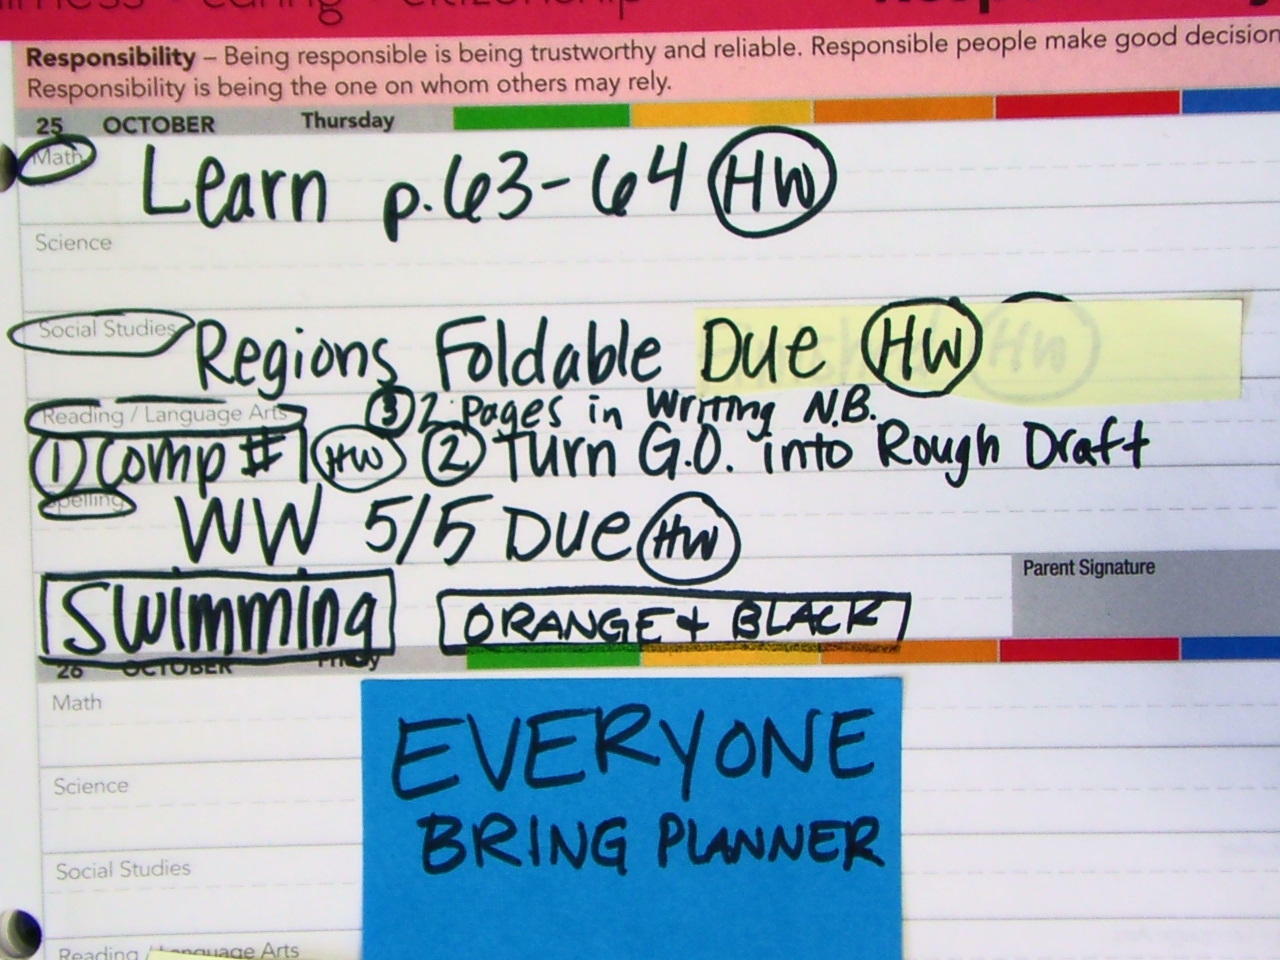 caring citizenship
Responsibility – Being responsible is being trustworthy and reliable. Responsible people make good decision
Responsibility is being the one on whom others may rely.
25 OCTOBER Thursday
Math Learn p.63-64 HW
Science
Social Studies Regions Foldable Due HW HW
Reading / Language Arts ③ 2 Pages in Writing N.B.
① Comp #1 HW ② Turn G.O. into Rough Draft
Spelling WW 5/5 Due HW
Swimming ORANGE + BLACK
Parent Signature
26 OCTOBER Friday
Math
Science
Social Studies
Reading / Language Arts
EVERYONE
BRING PLANNER